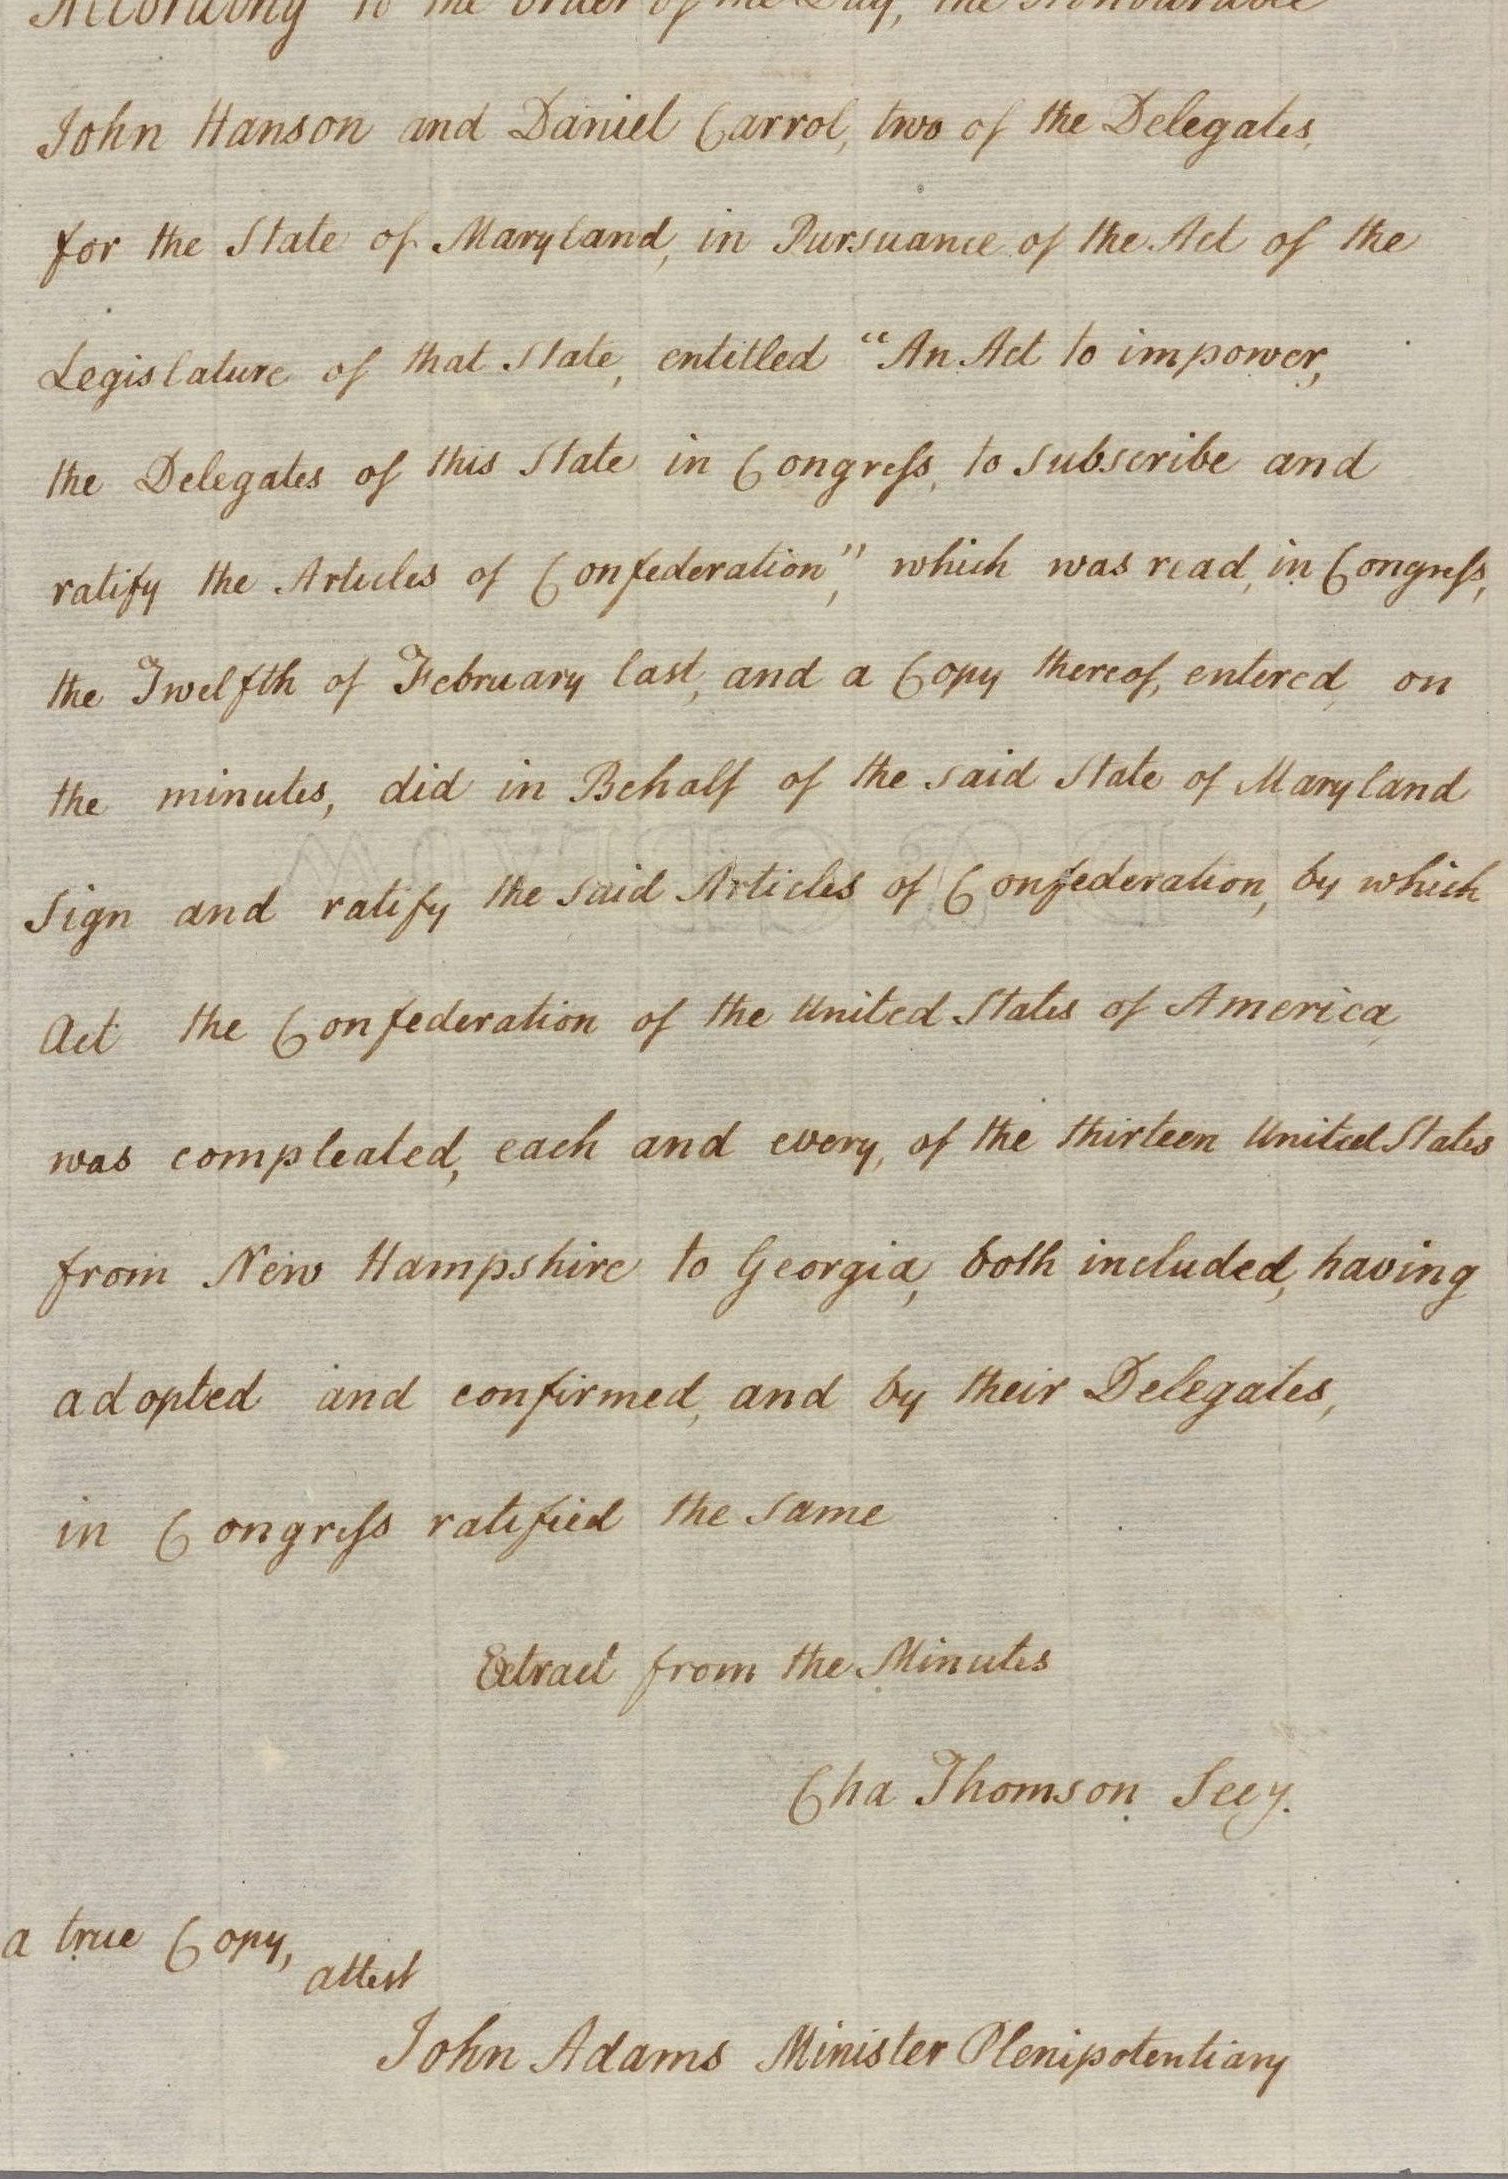 According to the order of the Day, the Honourable
John Hanson and Daniel Carrol, two of the Delegates,
for the State of Maryland, in Pursuance of the Act of the
Legislature of that State, entitled “An Act to impower,
the Delegates of this State in Congreſs, to subscribe and
ratify the Articles of Confederation,” which was read, in Congreſs,
the Twelfth of February last, and a Copy thereof, entered, on
the minutes, did in Behalf of the said State of Maryland
sign and ratify the said Articles of Confederation, by which
Act the Confederation of the United States of America,
was compleated, each and every, of the thirteen United States
from New Hampshire to Georgia, both included, having
adopted and confirmed, and by their Delegates,
in Congreſs ratified the same
Extract from the Minutes
Cha Thomson Secy.
a true Copy,
attest
John Adams Minister Plenipotentiary